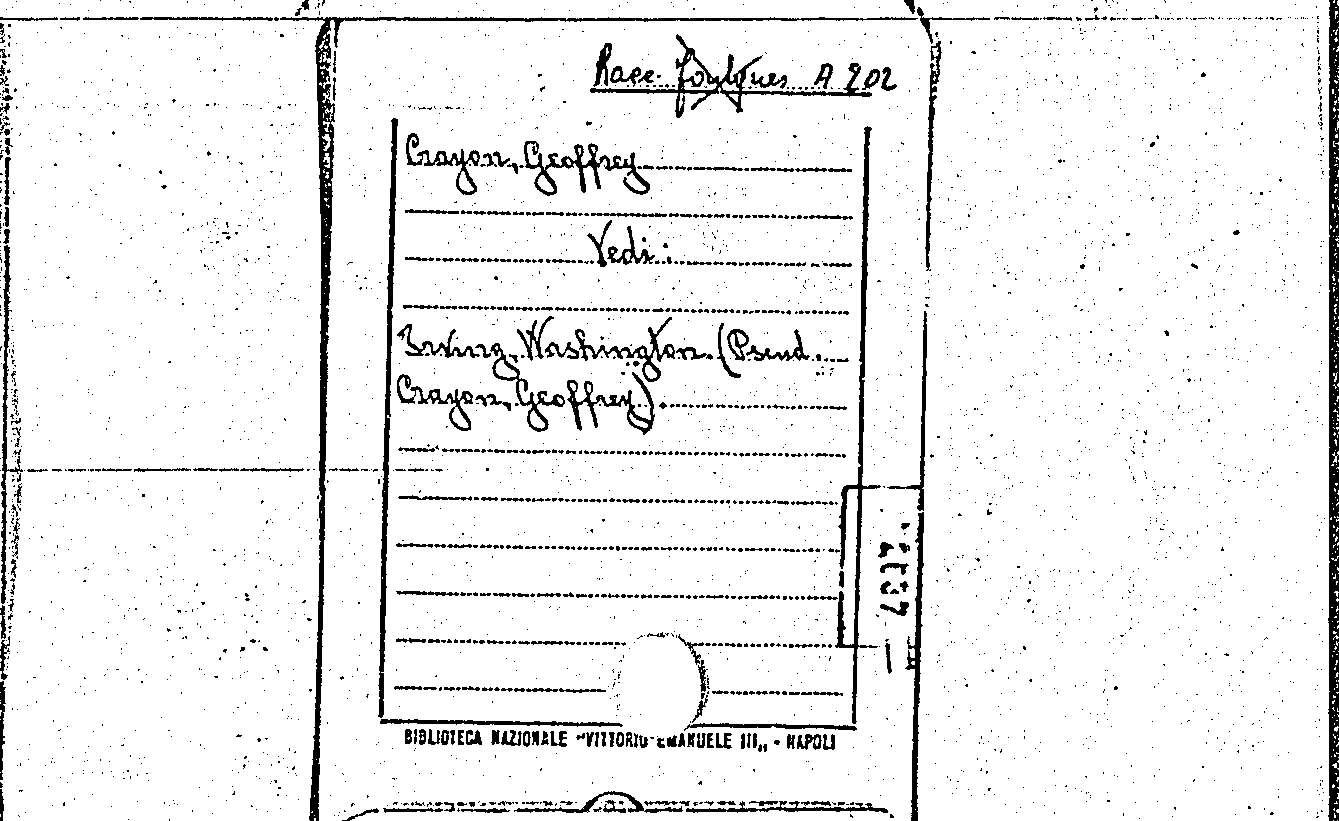 Racc. Foulques A 202
Crayon, Geoffrey
Vedi:
Irving, Washington. (Pseud.
Crayon, Geoffrey).
BIBLIOTECA NAZIONALE "VITTORIO EMANUELE III„ - NAPOLI